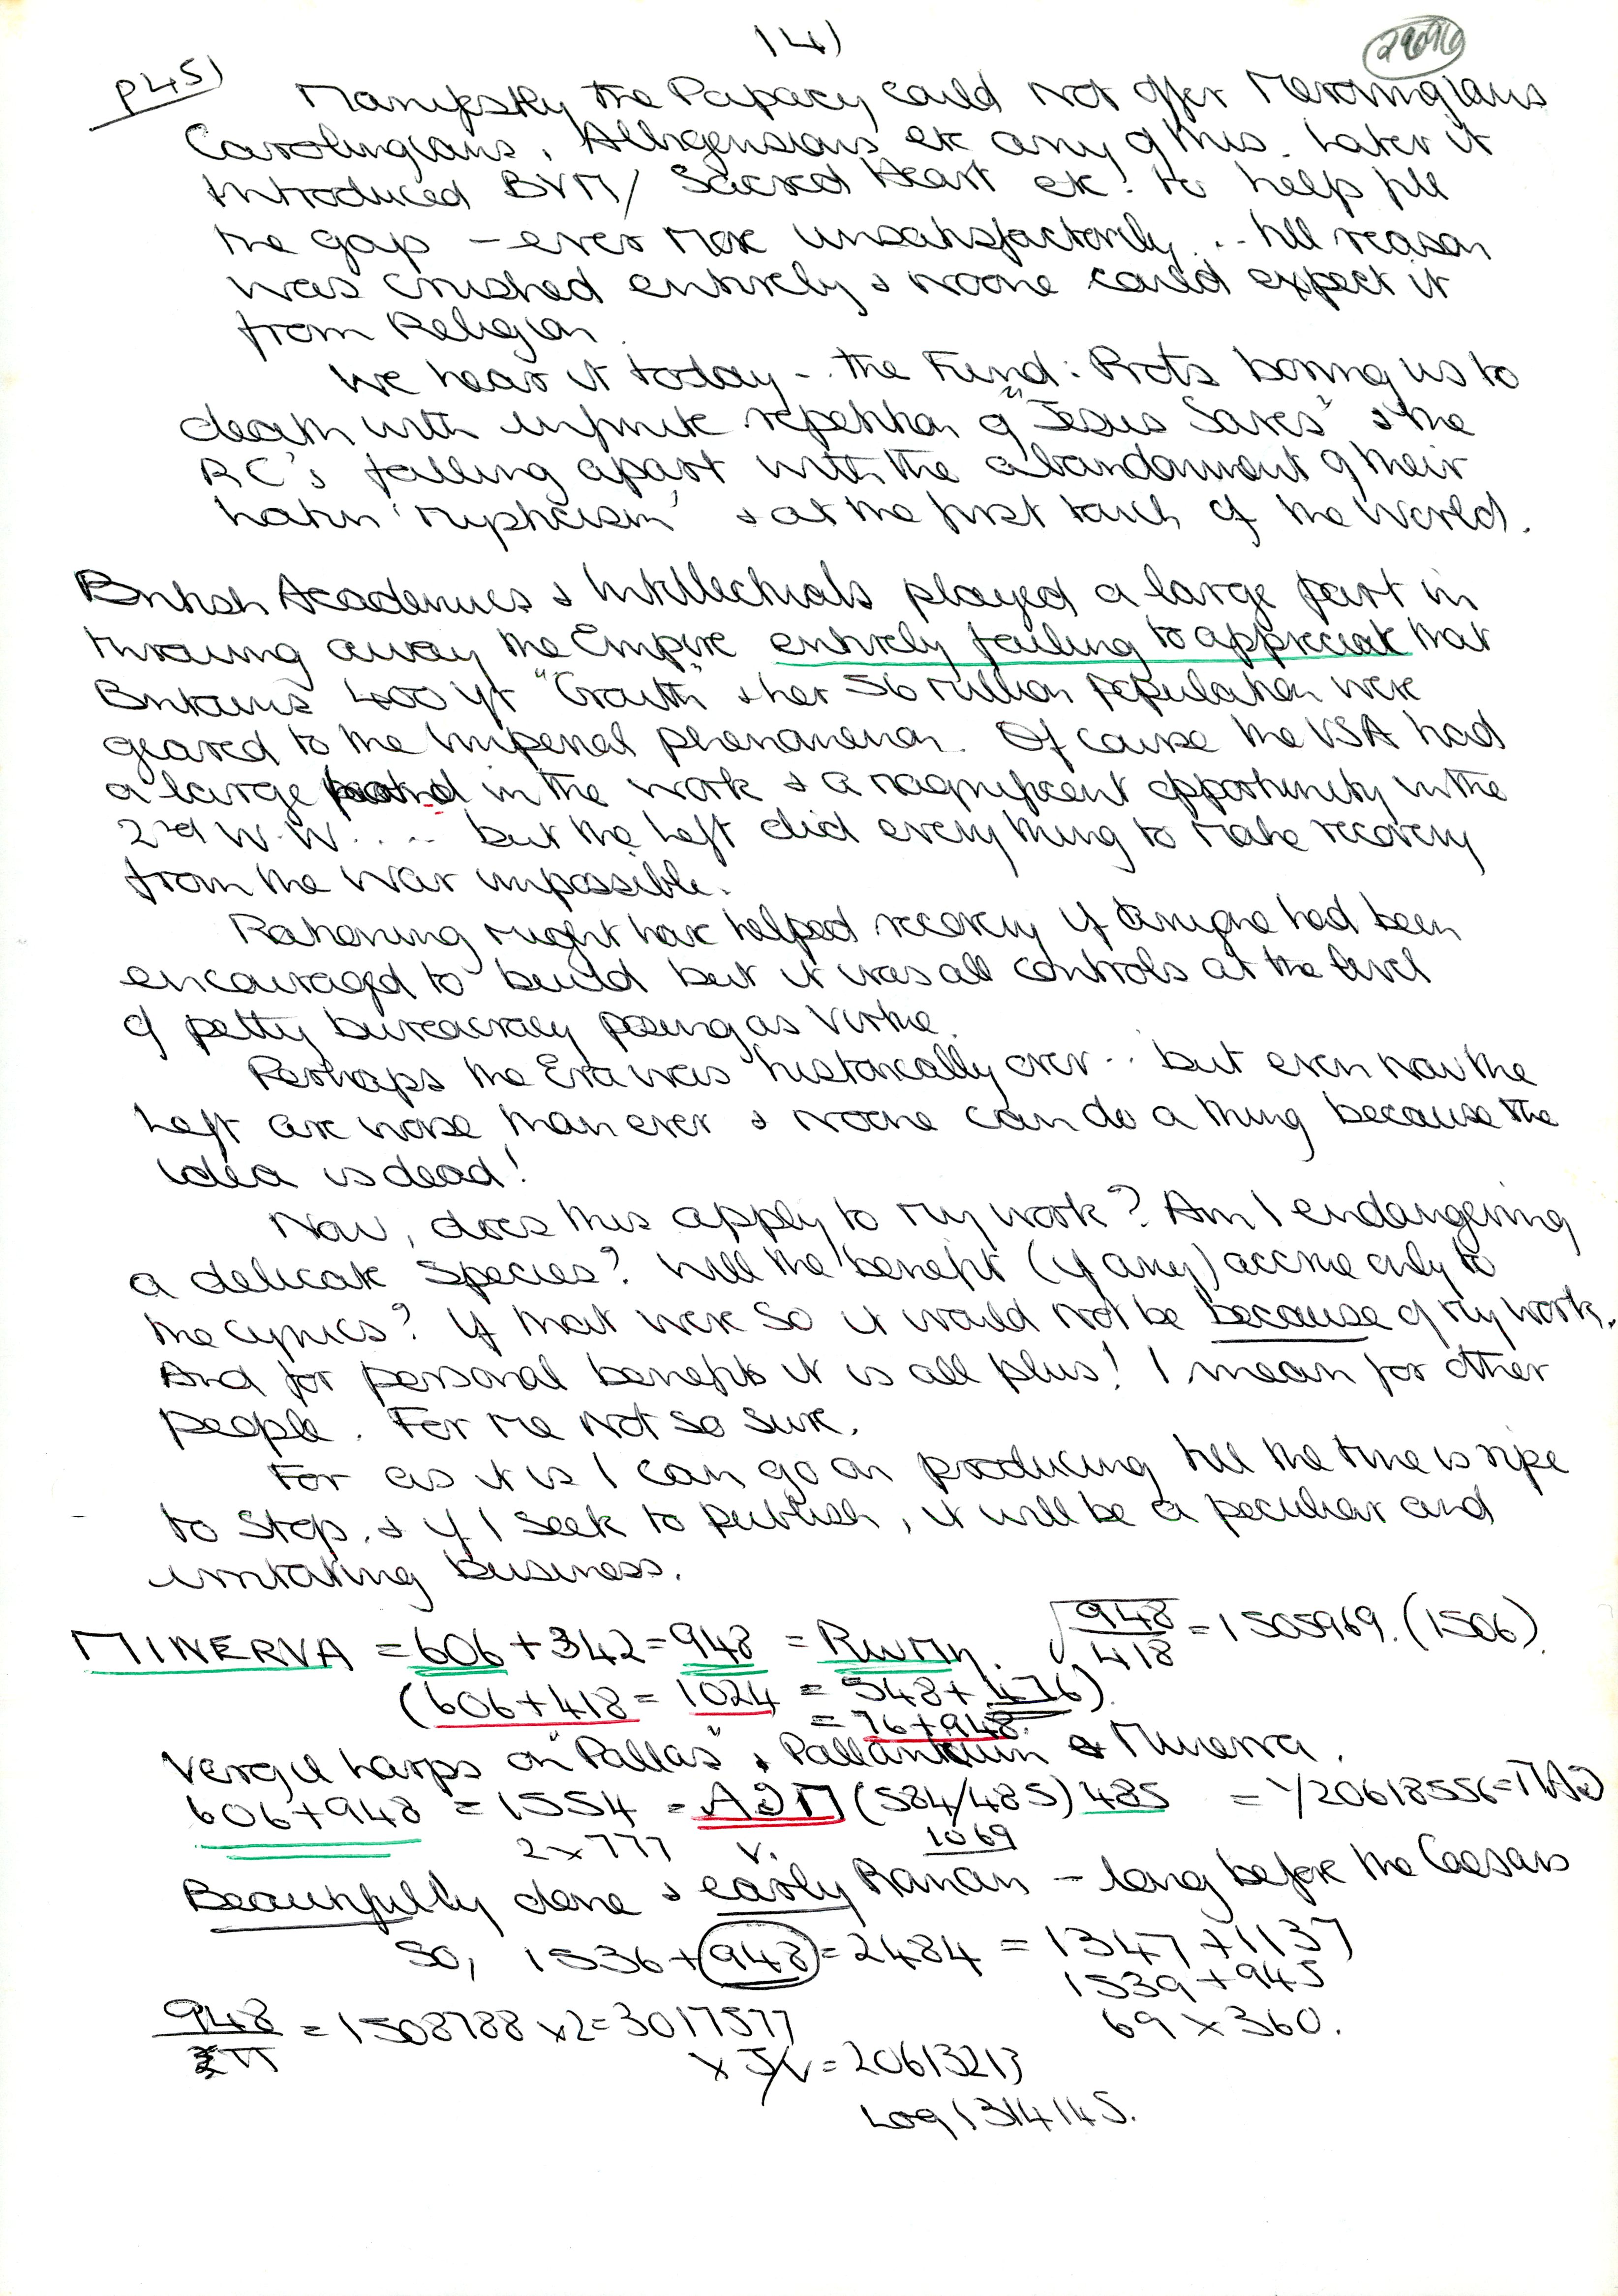 14)
p45)
Manifestly the Papacy could not offer Merovingians
Carolingians, Albigensians etc any of this. Later it
introduced BVM/ Sacred Heart etc! to help fill
the gap – ever more unsatisfactorily... till reason
was crushed entirely & noone could expect it
from Religion.
We hear it today -.. the Fund: Prots boring us to
death with infinite repetition of "Jesus Saves" & the
RC's falling apart with the abandonment of their
Latin 'mysticism' & at the first touch of the World.
British Academics & Intellectuals played a large part in
throwing away the Empire entirely failing to appreciate that
Britains 400 yr "Growth" & her 56 million population were
geared to the Imperial phenomenon. Of course the USA had
a large hand in the work & a magnificent opportunity in the
2nd W.W. ... but the Left did everything to make recovery
from the War impossible.
Rationing might have helped recovery if anyone had been
encouraged to build but it was all controls at the level
of petty bureacracy posing as Virtue.
Perhaps the Era was historically over... but even now the
Left are worse than ever & noone can do a thing because the
idea is dead!
Now, does this apply to my work? Am I endangering
a delicate species? Will the benefit (if any) accrue only to
the cynics? If that were so it would not be because of my work.
And for personal benefit it is all plus! I mean for other
people. For me not so sure.
For as it is I can go on producing till the time is ripe
to stop. & if I seek to publish, it will be a peculiar and
irritating business.
MINERVA = 606 + 342 = 948 = √948/418 = 1505969. (1506).
(606 + 418 = 1024 = 548 + 476)
= 76 + 948.
Vergil harps on "Pallas", Pallanteum & Minerva.
606 + 948 = 1554 = (584/485) 485 = 1/20618556 =
2 x 777 V. 1069
Beautifully done & early Roman – long before the Caesars
So, 1536 + 948 = 2484 = 1347 + 1137
1539 + 945
69 x 360.
948/2π = 1508788 x 2 = 3017577
= 20613213
Log 1314145.